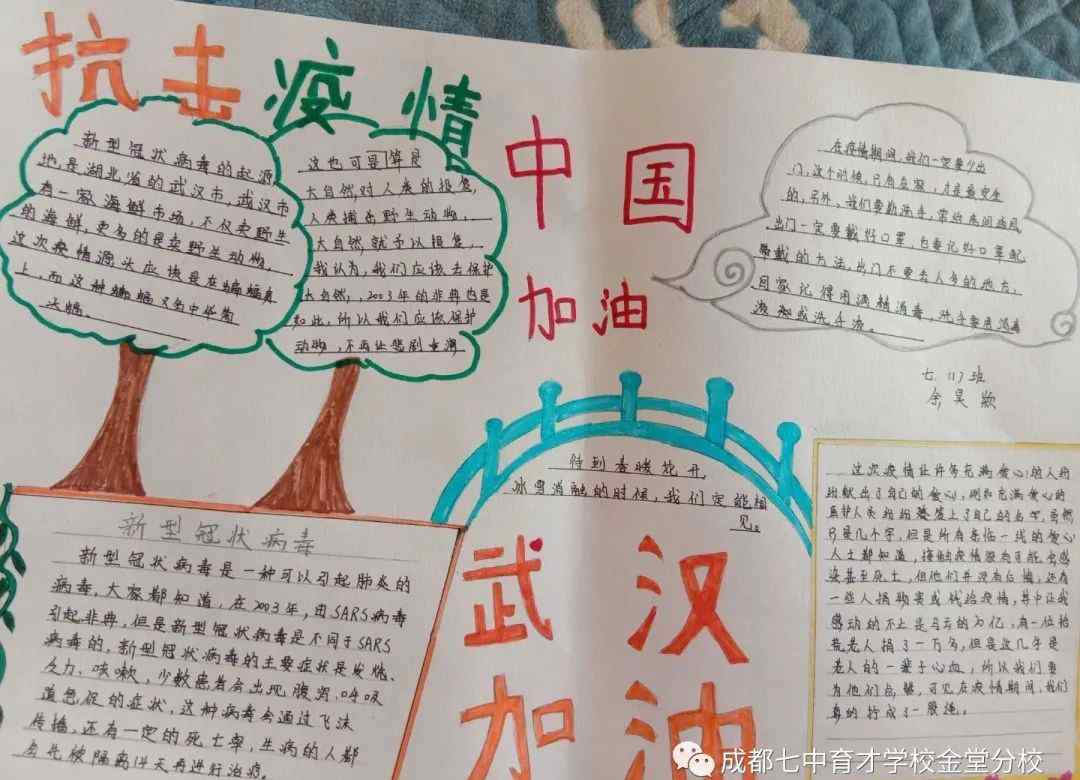 抗击疫情
新型冠状病毒的起源
地是湖北省的武汉市,武汉市
有一家海鲜市场,不仅卖野生
的海鲜,更多的是卖野生动物,
这次疫情源头应该是在蝙蝠身
上,而这种蝙蝠又名中华菊
头蝠。
这也可是算是
大自然,对人类的报复,
人类捕杀野生动物,
大自然,就予以报复,
我认为,我们应该去保护
大自然,,2003年的非典也是
如此,所以我们应该保护
动物,不再让悲剧重演
中国
加油
在疫情期间,我们一定要少出
门,这个时候,只有在家,才是最安全
的,另外,我们要勤洗手,常给房间通风,
出门一定要戴好口罩,也要记好口罩配
带戴的方法,出门不要去人多的地方,
回家记得用酒精消毒,洗手要用消毒
液和或洗手液。
七.(17)班
余昊颖
待到春暖花开,
冰雪消融的时候,我们定能相
见。
武汉
加油
新型冠状病毒
新型冠状病毒是一种可以引起肺炎的
病毒,大家都知道,在2003年,由SARS病毒
引起非典,但是新型冠状病毒是不同于SARS
病毒的,新型冠状病毒的主要症状是发烧、
乏力、咳嗽,少数患者会出现腹泻、呼吸
道急促的症状,这种病毒会通过飞沫
传播,还有一定的死亡率,生病的人都
会先被隔离14天再进行治疗。
这次疫情让许多充满爱心的人纷
纷献出了自己的爱心,
医护人员纷纷签上了自己的名字,虽然
只是几个字,但是所有亲临一线的爱心
人士都知道,接触疫情很有可能会感
染甚至死亡,但他们并没有后悔,还有
一些人捐物资或钱给疫情,其中让我
感动的不止是马云的10亿,有一位拾
荒老人捐了一万多,但是这几乎是
老人的一辈子心血,所以我们要
为他们点赞,可见在疫情期间,我们
真的拧成了一股绳。
成都七中育才学校金堂分校